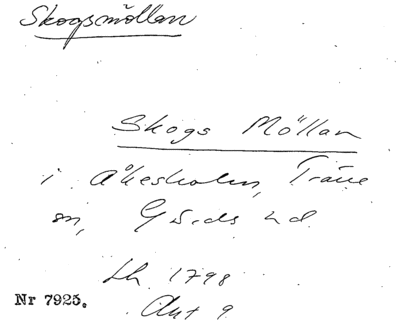 Skogsmöllan
Skogs Möllan
i Åkesholm, Träne
sn, Gärds hd.
Lh 1798
Akt 9
Nr 7925.